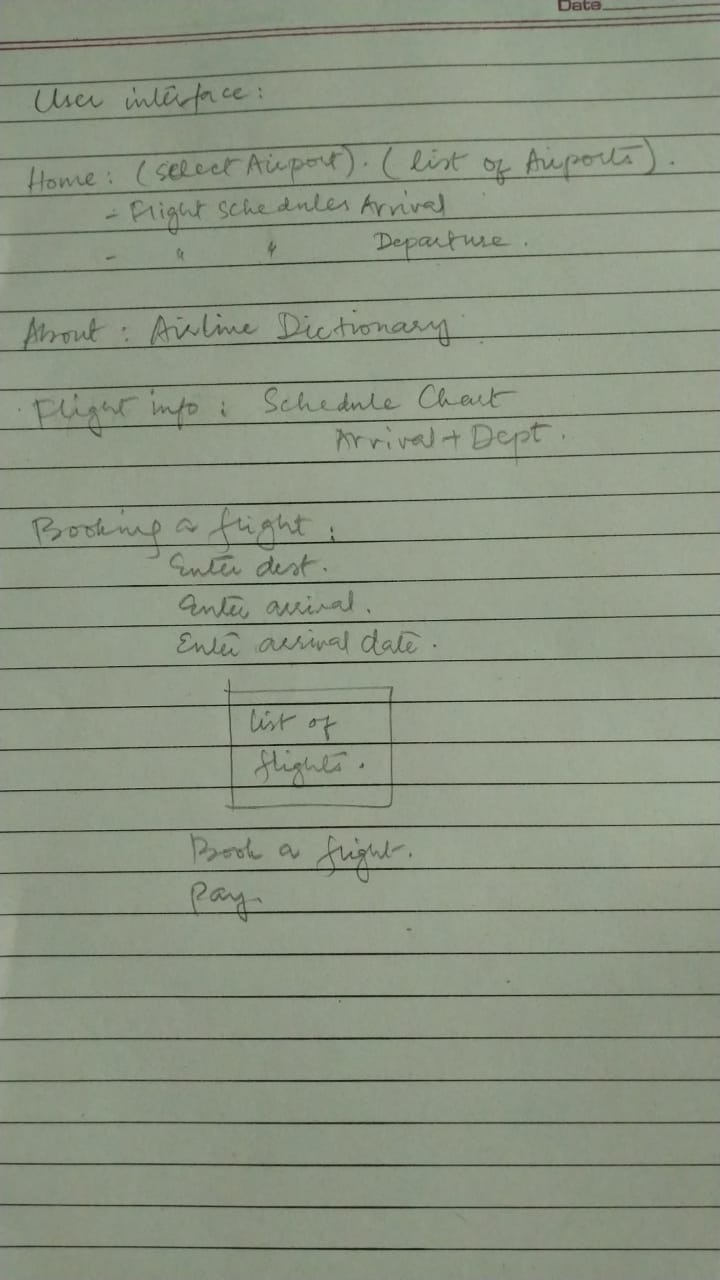 Date
User interface:
Home: (select Airport). (list of Airports).
- Flight Schedules Arrival
- " " Departure.
About: Airline Dictionary
Flight info: Schedule Chart
Arrival + Dept.
Booking a flight:
Enter dest.
Enter arrival.
Enter arrival date.
list of
flights.
Book a flight.
Pay.